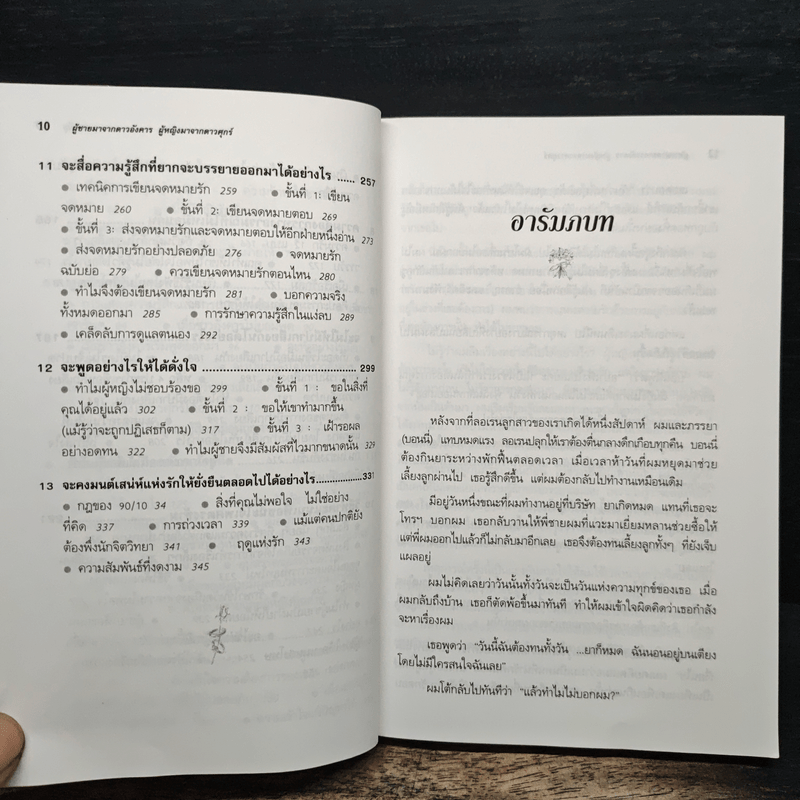 10 ผู้ชายมาจากดาวอังคาร ผู้หญิงมาจากดาวศุกร์
11 จะสื่อความรู้สึกที่ยากจะบรรยายออกมาได้อย่างไร ...... 257
● เทคนิคการเขียนจดหมายรัก 259 ● ขั้นที่ 1: เขียน
จดหมาย 260 ● ขั้นที่ 2: เขียนจดหมายตอบ 269
● ขั้นที่ 3: ส่งจดหมายรักและจดหมายตอบให้อีกฝ่ายหนึ่งอ่าน 273
● ส่งจดหมายรักอย่างปลอดภัย 276 ● จดหมายรัก
ฉบับย่อ 279 ● ควรเขียนจดหมายรักตอนไหน 280
● ทำไมจึงต้องเขียนจดหมายรัก 281 ● บอกความจริง
ทั้งหมดออกมา 285 ● การรักษาความรู้สึกในแง่ลบ 289
● เคล็ดลับการดูแลตนเอง 292
12 จะพูดอย่างไรให้ได้ดั่งใจ .................................................. 299
● ทำไมผู้หญิงไม่ชอบร้องขอ 299 ● ขั้นที่ 1 : ขอในสิ่งที่
คุณได้อยู่แล้ว 302 ● ขั้นที่ 2 : ขอให้เขาทำมากขึ้น
(แม้รู้ว่าจะถูกปฏิเสธก็ตาม) 317 ● ขั้นที่ 3 : เฝ้ารอผล
อย่างอดทน 322 ● ทำไมผู้ชายจึงมีสัมผัสที่ไวมากขนาดนั้น 329
13 จะคงมนต์เสน่ห์แห่งรักให้ยั่งยืนตลอดไปได้อย่างไร.................. 331
● กฎของ 90/10 34 ● สิ่งที่คุณไม่พอใจ ไม่ใช่อย่าง
ที่คิด 337 ● การถ่วงเวลา 339 ● แม้แต่คนปกติยัง
ต้องพึ่งนักจิตวิทยา 341 ● ฤดูแห่งรัก 343
● ความสัมพันธ์ที่งดงาม 345
อารัมภบท
หลังจากที่ลอเรนลูกสาวของเราเกิดได้หนึ่งสัปดาห์ ผมและภรรยา
(บอนนี่) แทบหมดแรง ลอเรนปลุกให้เราต้องตื่นกลางดึกเกือบทุกคืน บอนนี่
ต้องกินยาระหว่างพักฟื้นตลอดเวลา เมื่อเวลาห้าวันที่ผมหยุดมาช่วย
เลี้ยงลูกผ่านไป เธอรู้สึกดีขึ้น แต่ผมต้องกลับไปทำงานเหมือนเดิม
มีอยู่วันหนึ่งขณะที่ผมทำงานอยู่ที่บริษัท ยาเกิดหมด แทนที่เธอจะ
โทรฯ บอกผม เธอกลับวานให้พี่ชายผมที่แวะมาเยี่ยมหลานช่วยซื้อให้
แต่พี่ผมออกไปแล้วก็ไม่กลับมาอีกเลย เธอจึงต้องทนเลี้ยงลูกทั้งๆ ที่ยังเจ็บ
แผลอยู่
ผมไม่คิดเลยว่าวันนั้นทั้งวันจะเป็นวันแห่งความทุกข์ของเธอ เมื่อ
ผมกลับถึงบ้าน เธอก็ตัดพ้อขึ้นมาทันที ทำให้ผมเข้าใจผิดคิดว่าเธอกำลัง
จะหาเรื่องผม
เธอพูดว่า "วันนี้ฉันต้องทนทั้งวัน ...ยาก็หมด ฉันนอนอยู่บนเตียง
โดยไม่มีใครสนใจฉันเลย"
ผมโต้กลับไปทันทีว่า "แล้วทำไมไม่บอกผม?"